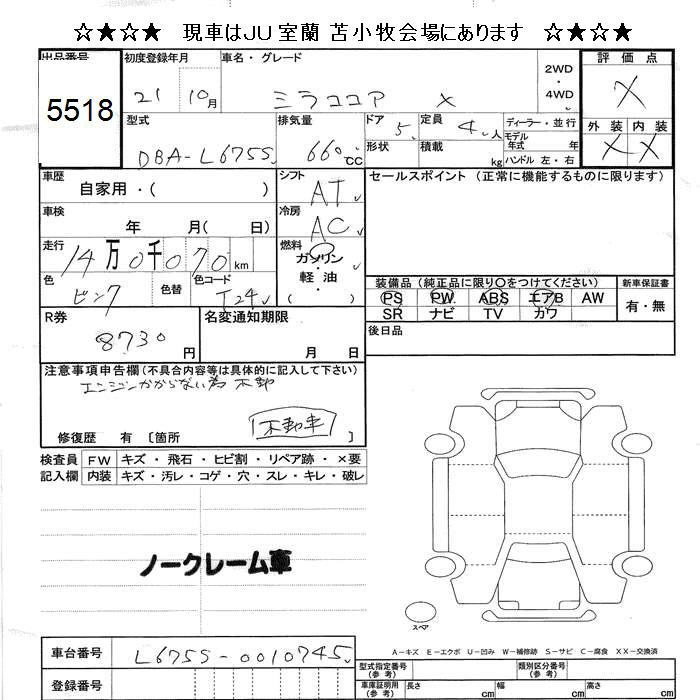 ☆★☆★ 現車はJU室蘭 苫小牧会場にあります ☆★☆★
出品番号 初度登録年月 車名・グレード 2WD ・ 4WD 評価点
5518 21 10月 ミラココア X X
型式 排気量 ドア 5 定員 4人 ディーラー・並行 外装 内装
DBA-L675S 660cc 形状 積載 kg モデル年式 年 X X
ハンドル 左・右
車歴 自家用・( ) シフト AT セールスポイント (正常に機能するものに限ります)
車検 年 月( 日) 冷房 AC
走行 14万0千070km 燃料 ガソリン・軽油・( )
色 ピンク 色替 色コード T24 装備品 (純正品に限り○をつけてください) 新車保証書
PS PW ABS エアB AW 有・無
SR ナビ TV カワ
R券 8730円 名変通知期限 月 日 後日品
注意事項申告欄(不具合内容等は具体的に記入して下さい)
エンジンかからない為 不動
不動車
修復歴 有 〔箇所 〕
検査員 FW キズ・飛石・ヒビ割・リペア跡・×要
記入欄 内装 キズ・汚レ・コゲ・穴・スレ・キレ・破レ
ノークレーム車
スペア
A-キズ E-エクボ U-凹み W-補修跡 S-サビ C-腐食 XX-交換済
車台番号 L675S-0010745 型式指定番号(参考) 類別区分番号(参考)
登録番号 車庫証明用(参考) 長さ cm 幅 cm 高さ cm